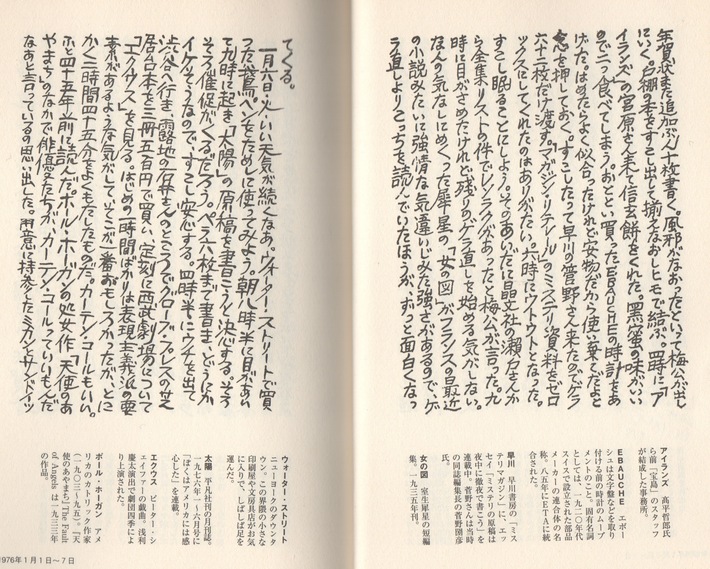 年賀状また追加ぶん十枚書く。風邪がなおったといって梅公が出し
にいく。戸棚の本をすこし出して揃えなおしヒモで結ぶ。四時に「ア
イランズ」の宮原さん来て信玄餅をくれた。黒蜜の味がいい
ので二つ食べてしまう。おととい買ったEBAUCHEの時計をあ
げた。はめたらよく似合ったけれど安物だから使い棄てだよと
念を押しておく。すこしたって早川の菅野さん来たのでゲラ
六十三枚だけ渡す。「マガジン・リテレール」のミステリ資料をゼロ
ックスにしてくれたのはありがたい。六時にウトウトとなった。
すこし眠ることにしよう。そのあいだに晶文社の さんか
ら全集リストの件でレンラクがあったと梅公が言った。九
時に目がさめたけれど残りのゲラ直しを始める気がしない。
なんの気なしにめくった犀星の「女の図」がフランスの最近
の小説みたいに強情な気違いじみた強さがあるので、ゲ
ラ直しよりこっちを読んでいたほうが、ずっと面白くなっ
アイランズ 高平哲郎氏
ら前『宝島』のスタッフ
が結成した事務所。
EBAUCHE エボー
シュは文字盤などを取り
付ける前の時計のムーブ
メントのこと。固有名詞
としては、一九二〇年代
スイスで設立された部品
メーカーの連合体の名
称。八五年にETAに統
合された。
早川 早川書房の「ミス
テリマガジン」に「エッ
セイ「ミステリの原稿は
夜中に徹夜で書こう」を
連載中。菅野さんは当時
の同誌編集長の菅野圀彦
氏。
女の図 室生犀星の短編
集。一九三五年刊。
てくる。
一月六日・火・いい天気が続くなあ。ウォーター・ストリートで買
った鵞ペンをためしに使ってみよう。朝八時半に目があい
て九時に起き「太陽」の原稿を書こうと決心する。そろ
そろ催促がくるだろう。ペラ六枚まで書き、どうにか
イケそうなので、すこし安心する。四時半にウチを出て
渋谷へ行き、露地の石井さんのところでグローブ・プレスの芝
居台本を三冊五百円で買い、定刻に西武劇場の
「エクウス」を見る。はじめの一時間ばかりは表現主義派の要
素があるような気がして、そこが一番おもしろかったが、とに
かく二時間四十五分をよくもたしたものだ。カーテン・コールもいい。
ふと四十五年前に読んだポール・ホーガンの処女作「天使のあ
やまち」のなかで俳優たちが、カーテン・コールっていいもんだ
なあと言っているのを思い出した。用意に持参したミカンとサンドイッ
ウォーター・ストリート
ニューヨークのダウンタ
ウン。この界隈の小さな
印刷屋や文房具店がお気
に入りで、しばしば足を
運んだ。
太陽 平凡社の月刊誌。
一九七六年一月号に
「ぼくはアメリカには感
心した」を連載。
エクウス ピーター・シ
ェイファーの戯曲。浅利
慶太演出で劇団四季によ
り上演された。
ポール・ホーガン アメ
リカのカトリック作家
(一九〇三〜九五)。『天
使のあやまち』The Fault
of Angels は一九三三年
の作品。
1976年1月1日〜7日